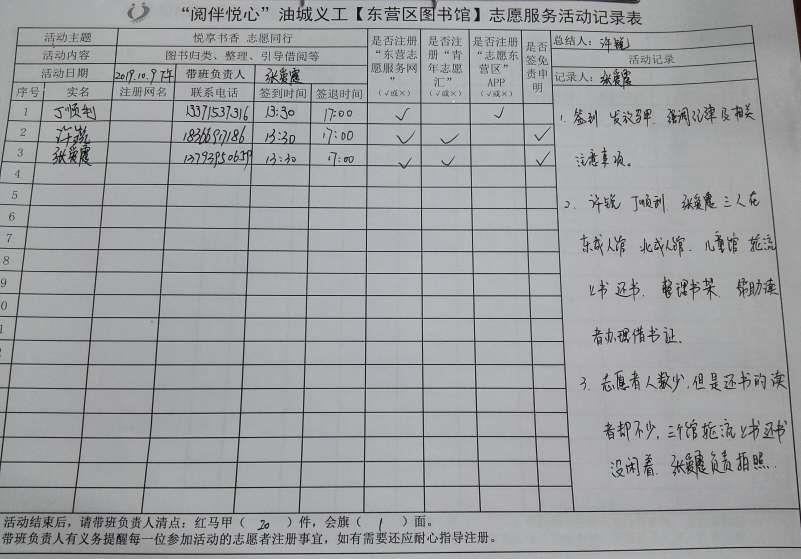 “阅伴悦心”油城义工【东营区图书馆】志愿服务活动记录表
活动主题 悦享书香 志愿同行
活动内容 图书归类、整理、引导借阅等
活动日期 2019.10.9 下午 带班负责人 张爱霞
是否注册“东营志愿服务网”（√或×）
是否注册“青年志愿汇”（√或×）
是否注册“志愿东营区”APP（√或×）
是否签免责申明
总结人：许锐
活动记录
记录人：张爱霞
序号 实名 注册网名 联系电话 签到时间 签退时间
1 丁顺利 13371537316 13:30 17:00 √ √
2 许锐 13:30 17:00 √ √ √
3 张爱霞 13:30 17:00 √ √ √
4
5
6
7
8
9
0
1
1. 签到 发放马甲. 强调纪律及相关
注意事项。
2. 许锐 丁顺利 张爱霞 三人在
东成人馆 北成人馆. 儿童馆 轮流
上书 还书. 整理书架. 帮助读
者办理借书证.
3. 志愿者人数少,但是还书的读
者却不少,三个馆轮流上书还书
没闲着. 张爱霞负责拍照.
活动结束后，请带班负责人清点：红马甲（ 20 ）件，会旗（ 1 ）面。
带班负责人有义务提醒每一位参加活动的志愿者注册事宜，如有需要还应耐心指导注册。